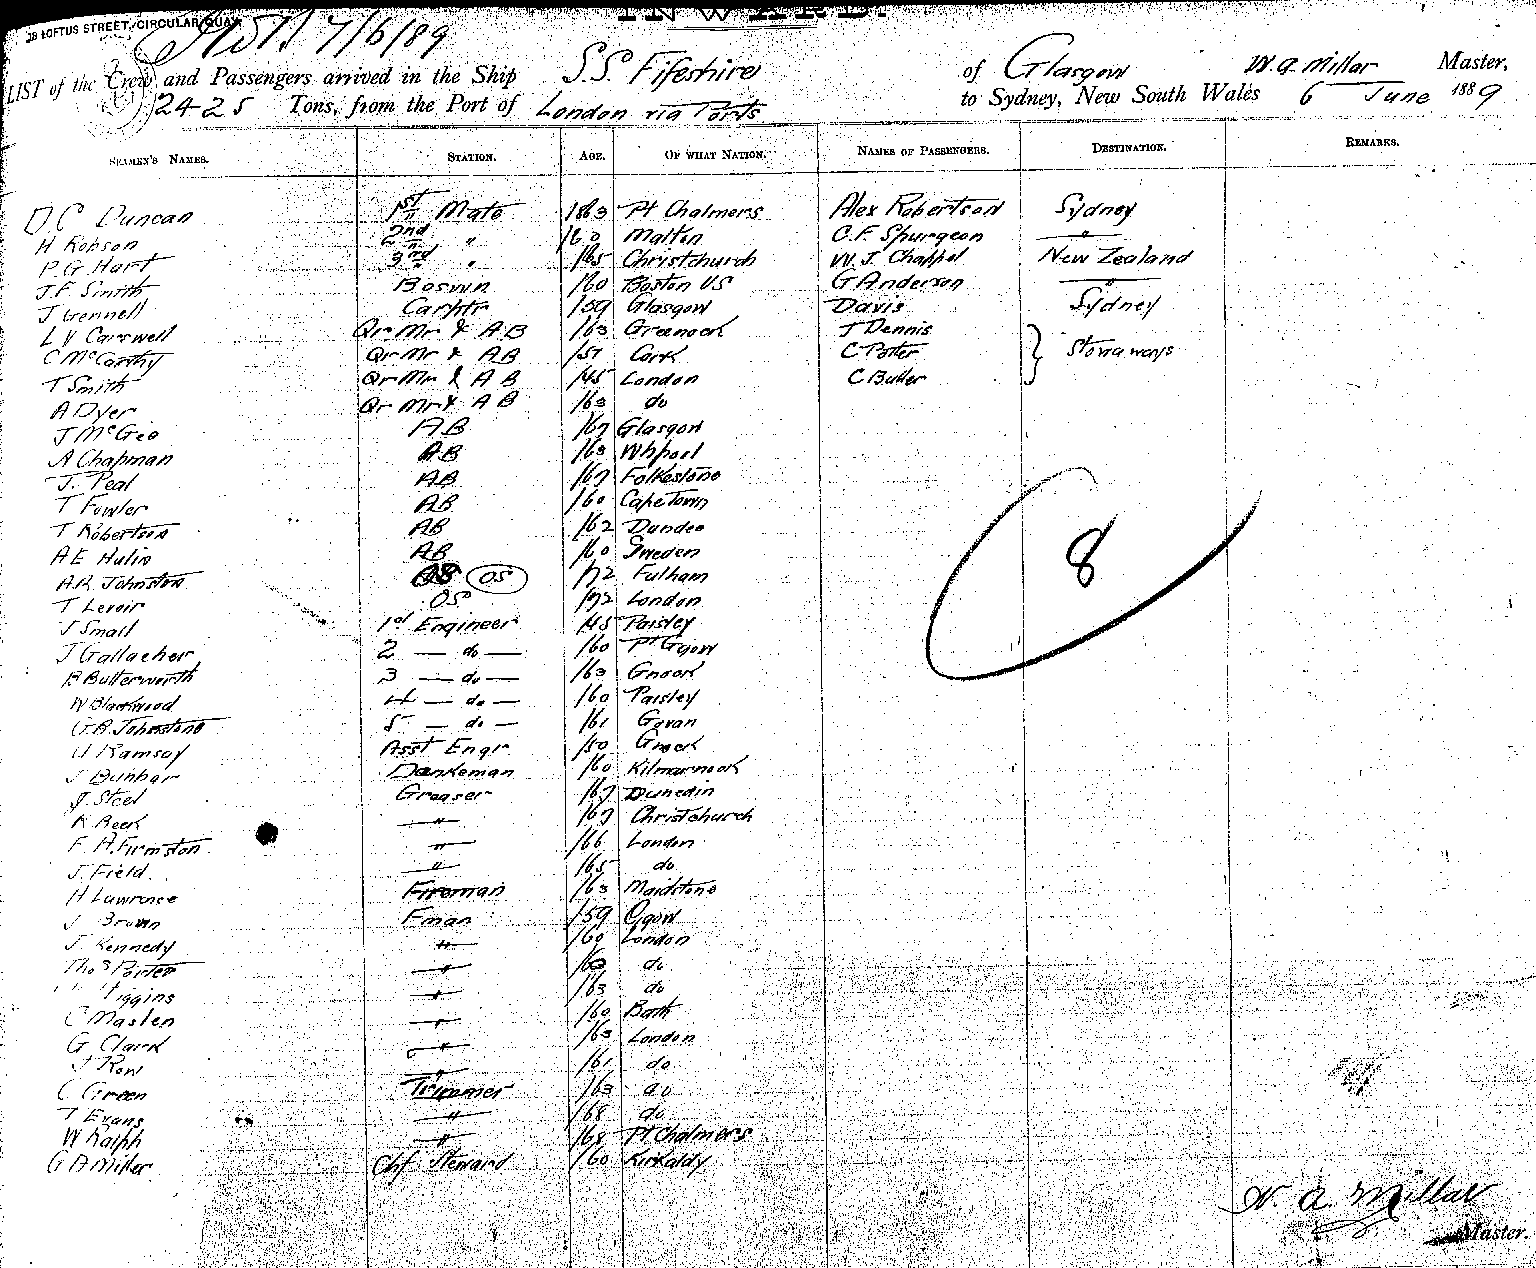 38 LOFTUS STREET, CIRCULAR QUAY
INWARD.
7/6/89
LIST of the Crew and Passengers arrived in the Ship S.S. Fifeshire of Glasgow W. A. Millar Master,
2425 Tons, from the Port of London via Ports to Sydney, New South Wales 6 June 1889
SEAMEN'S NAMES. STATION. AGE. OF WHAT NATION. NAMES OF PASSENGERS. DESTINATION. REMARKS.
D C Duncan 1st Mate 1863 Pt Chalmers Alex Robertson Sydney
H Robson 2nd " /60 Malton C. F. Spurgeon "
P. G. Hart 3rd " /65 Christchurch W. J. Chappel New Zealand
J. F. Smith Boswn /60 Boston US G Anderson "
J Gennell Carptr /59 Glasgow Davis Sydney
L V Carswell Qr Mr & AB /63 Greenock J Dennis
C McCarthy Qr Mr & AB /51 Cork C Potter Stowaways
T Smith Qr Mr & AB /45 London C Butler
A Dyer Qr Mr & AB /63 do
J McGeo AB /67 Glasgow
A Chapman AB /63 Whpool
J. Peal AB /67 Folkestone
T Fowler AB /60 Cape Town
T Robertson AB /62 Dundee
A E Hulin AB /60 Sweden
A.R. Johnston OS /72 Fulham
T Levoir OS /72 London
J Small 1st Engineer /45 Paisley
J Gallacher 2 — do — /60 Pt Ggow
B Butterworth 3 — do — /63 Gnock
W Blackwood 4 — do — /60 Paisley
G.B. Johnstone 5 — do — /61 Govan
Ramsay Asst Engr /50 Gnock
J Dunbar Donkeman /60 Kilmarnock
J. Steel Greaser /67 Dunedin
R Beck " /67 Christchurch
F. A. Firmston " /66 London
J. Field " /65 do
H Lawrence Fireman /63 Maidstone
J Brown Fman /59 Ggow
J. Kennedy " /60 London
Thos Porter " /60 do
Higgins " /63 do
C Maslen " /60 Bath
G. Clark " /63 London
J Row " /61 do
C Green Trimmer /63 do
T Evans " /68 do
W Ralph " /68 Pt Chalmers
G A Miller Chf Steward /60 Kirkaldy
8
W. A. Millar
Master.